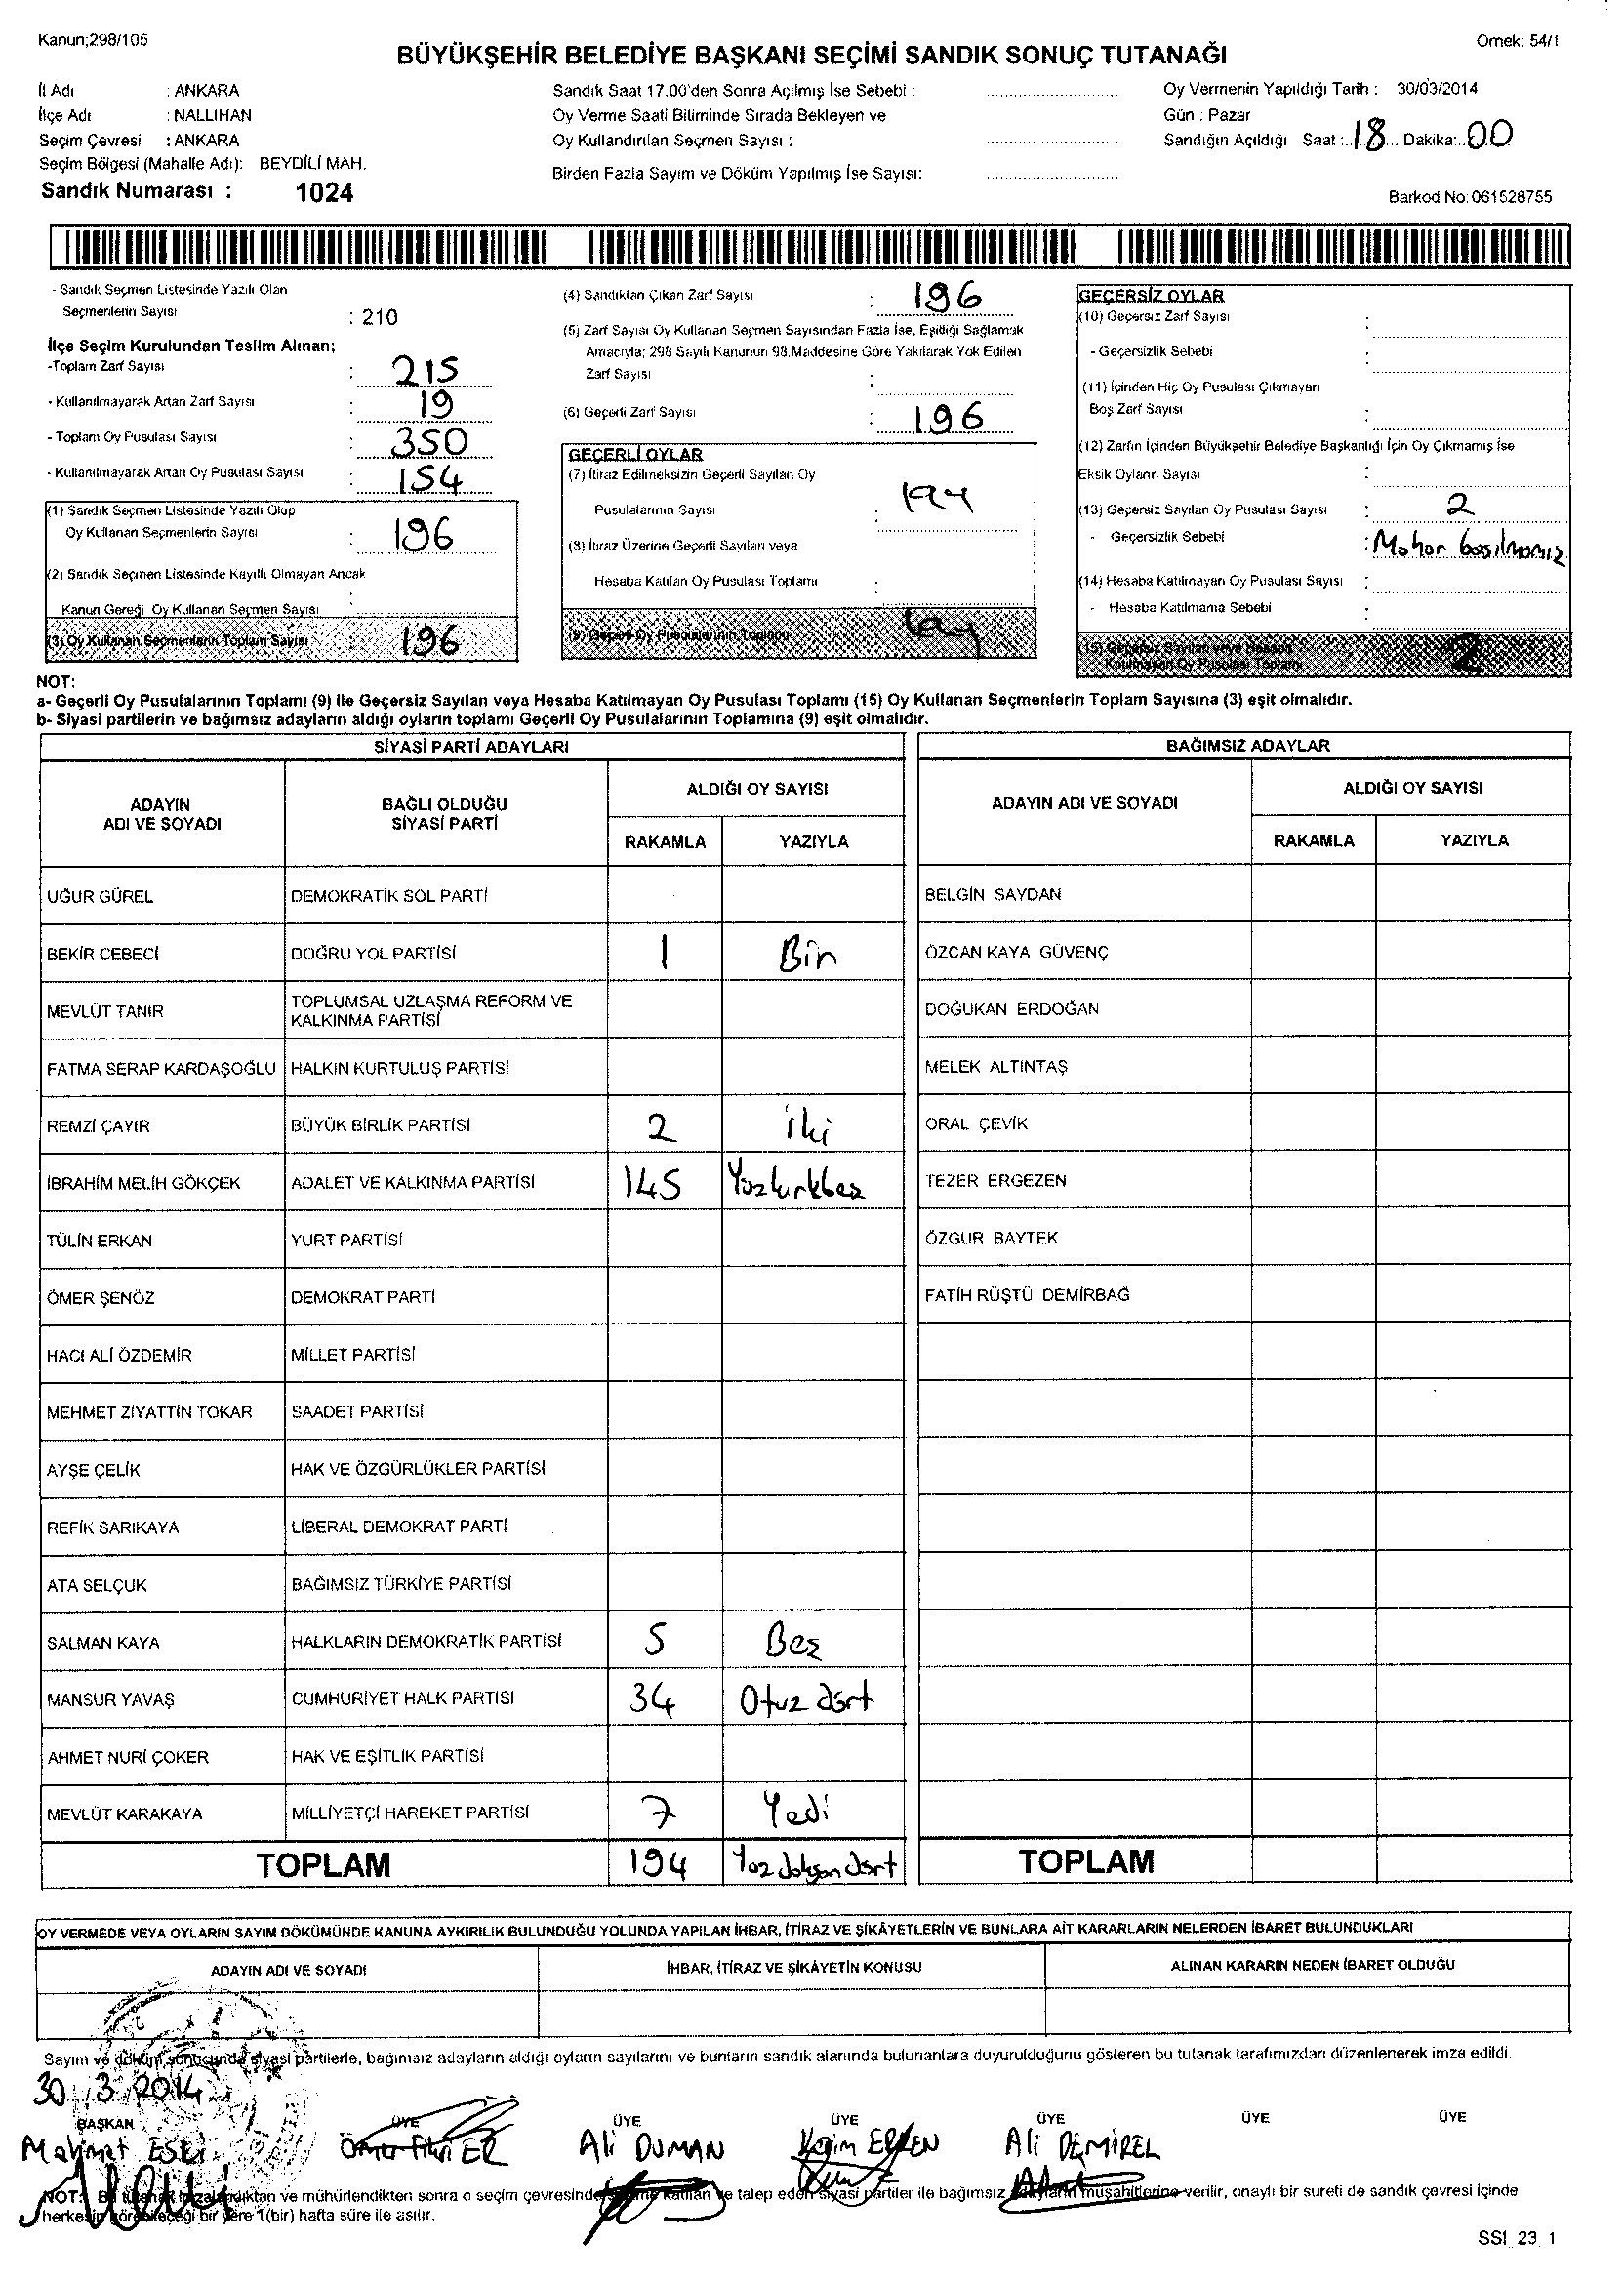 Kanun;298/105
Örnek: 54/1
BÜYÜKŞEHİR BELEDİYE BAŞKANI SEÇİMİ SANDIK SONUÇ TUTANAĞI
İl Adı : ANKARA
İlçe Adı : NALLIHAN
Seçim Çevresi : ANKARA
Seçim Bölgesi (Mahalle Adı): BEYDİLİ MAH.
Sandık Numarası : 1024
Sandık Saat 17.00'den Sonra Açılmış İse Sebebi :
Oy Verme Saati Bitiminde Sırada Bekleyen ve
Oy Kullandırılan Seçmen Sayısı :
Birden Fazla Sayım ve Döküm Yapılmış İse Sayısı:
Oy Vermenin Yapıldığı Tarih : 30/03/2014
Gün : Pazar
Sandığın Açıldığı Saat : 18 Dakika: 00
Barkod No: 061528755
- Sandık Seçmen Listesinde Yazılı Olan
Seçmenlerin Sayısı : 210
İlçe Seçim Kurulundan Teslim Alınan;
-Toplam Zarf Sayısı : 215
- Kullanılmayarak Artan Zarf Sayısı : 19
- Toplam Oy Pusulası Sayısı : 350
- Kullanılmayarak Artan Oy Pusulası Sayısı : 154
(1) Sandık Seçmen Listesinde Yazılı Olup
Oy Kullanan Seçmenlerin Sayısı : 196
(2) Sandık Seçmen Listesinde Kayıtlı Olmayan Ancak
Kanun Gereği Oy Kullanan Seçmen Sayısı :
(3) Oy Kullanan Seçmenlerin Toplam Sayısı : 196
(4) Sandıktan Çıkan Zarf Sayısı : 196
(5) Zarf Sayısı Oy Kullanan Seçmen Sayısından Fazla İse, Eşitliği Sağlamak
Amacıyla; 298 Sayılı Kanunun 98.Maddesine Göre Yakılarak Yok Edilen
Zarf Sayısı :
(6) Geçerli Zarf Sayısı : 196
GEÇERLİ OYLAR
(7) İtiraz Edilmeksizin Geçerli Sayılan Oy
Pusulalarının Sayısı : 194
(8) İtiraz Üzerine Geçerli Sayılan veya
Hesaba Katılan Oy Pusulası Toplamı :
(9) Geçerli Oy Pusulalarının Toplamı 194
GEÇERSİZ OYLAR
(10) Geçersiz Zarf Sayısı :
- Geçersizlik Sebebi :
(11) İçinden Hiç Oy Pusulası Çıkmayan
Boş Zarf Sayısı :
(12) Zarfın İçinden Büyükşehir Belediye Başkanlığı İçin Oy Çıkmamış İse
Eksik Oyların Sayısı :
(13) Geçersiz Sayılan Oy Pusulası Sayısı : 2
- Geçersizlik Sebebi : Mohor basılmamız
(14) Hesaba Katılmayan Oy Pusulası Sayısı :
- Hesaba Katılmama Sebebi :
(15) Geçersiz Sayılan veya Hesaba
Katılmayan Oy Pusulası Toplamı 2
NOT:
a- Geçerli Oy Pusulalarının Toplamı (9) ile Geçersiz Sayılan veya Hesaba Katılmayan Oy Pusulası Toplamı (15) Oy Kullanan Seçmenlerin Toplam Sayısına (3) eşit olmalıdır.
b- Siyasi partilerin ve bağımsız adayların aldığı oyların toplamı Geçerli Oy Pusulalarının Toplamına (9) eşit olmalıdır.
SİYASİ PARTİ ADAYLARI
ADAYIN ADI VE SOYADI
BAĞLI OLDUĞU SİYASİ PARTİ
ALDIĞI OY SAYISI
RAKAMLA YAZIYLA
UĞUR GÜREL DEMOKRATİK SOL PARTİ
BEKİR CEBECİ DOĞRU YOL PARTİSİ 1 Bin
MEVLÜT TANIR TOPLUMSAL UZLAŞMA REFORM VE
KALKINMA PARTİSİ
FATMA SERAP KARDAŞOĞLU HALKIN KURTULUŞ PARTİSİ
REMZİ ÇAYIR BÜYÜK BİRLİK PARTİSİ 2 iki
İBRAHİM MELİH GÖKÇEK ADALET VE KALKINMA PARTİSİ 145 Yüzkırkbeş
TÜLİN ERKAN YURT PARTİSİ
ÖMER ŞENÖZ DEMOKRAT PARTİ
HACI ALİ ÖZDEMİR MİLLET PARTİSİ
MEHMET ZİYATTİN TOKAR SAADET PARTİSİ
AYŞE ÇELİK HAK VE ÖZGÜRLÜKLER PARTİSİ
REFİK SARIKAYA LİBERAL DEMOKRAT PARTİ
ATA SELÇUK BAĞIMSIZ TÜRKİYE PARTİSİ
SALMAN KAYA HALKLARIN DEMOKRATİK PARTİSİ 5 Beş
MANSUR YAVAŞ CUMHURİYET HALK PARTİSİ 34 Otuz dört
AHMET NURİ ÇOKER HAK VE EŞİTLİK PARTİSİ
MEVLÜT KARAKAYA MİLLİYETÇİ HAREKET PARTİSİ 7 Yedi
TOPLAM 194 Yüz doksan dört
BAĞIMSIZ ADAYLAR
ADAYIN ADI VE SOYADI
ALDIĞI OY SAYISI
RAKAMLA YAZIYLA
BELGİN SAYDAN
ÖZCAN KAYA GÜVENÇ
DOĞUKAN ERDOĞAN
MELEK ALTINTAŞ
ORAL ÇEVİK
TEZER ERGEZEN
ÖZGUR BAYTEK
FATİH RÜŞTÜ DEMİRBAĞ
TOPLAM
OY VERMEDE VEYA OYLARIN SAYIM DÖKÜMÜNDE KANUNA AYKIRILIK BULUNDUĞU YOLUNDA YAPILAN İHBAR, İTİRAZ VE ŞİKÂYETLERİN VE BUNLARA AİT KARARLARIN NELERDEN İBARET BULUNDUKLARI
ADAYIN ADI VE SOYADI İHBAR, İTİRAZ VE ŞİKÂYETİN KONUSU ALINAN KARARIN NEDEN İBARET OLDUĞU
Sayım ve döküm sonucunda siyasi partilerle, bağımsız adayların aldığı oyların sayılarını ve bunların sandık alanında bulunanlara duyurulduğunu gösteren bu tutanak tarafımızdan düzenlenerek imza edildi.
30 / 3 / 2014
BAŞKAN ÜYE ÜYE ÜYE ÜYE ÜYE ÜYE
Mahmat ESKİ Ömer Fikri ER Ali DUMAN ERKEN Ali DEMİREL
NOT: Bu tutanak imzalandıktan ve mühürlendikten sonra o seçim çevresinde seçime katılan ve talep eden siyasi partiler ile bağımsız adayların müşahitlerine verilir, onaylı bir sureti de sandık çevresi içinde
herkesin görebileceği bir yere 1(bir) hafta süre ile asılır.
SSI_23_1